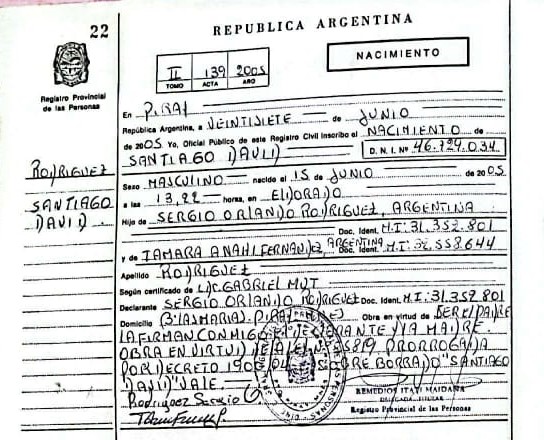 22
REPUBLICA ARGENTINA
NACIMIENTO
II 139 2005
TOMO ACTA AÑO
Registro Provincial
de las Personas
En PIRAY
República Argentina, a VEINTISIETE de JUNIO
de 2005 Yo, Oficial Público de este Registro Civil inscribo el NACIMIENTO de
SANTIAGO DAVID D. N. I. Nº 46.724.034
RODRIGUEZ
SANTIAGO
DAVID
Sexo MASCULINO nacido el 15 de JUNIO de 2005
a las 13,22 horas, en ELDORADO
Hijo de SERGIO ORLANDO RODRIGUEZ, ARGENTINA
Doc. Ident. M.I: 31.352.801
y de TAMARA ANAHI FERNANDEZ, ARGENTINA Doc. Ident. M.I: 32.558.644
Apellido RODRIGUEZ
Según certificado de LIC. GABRIEL MUT
Declarante SERGIO ORLANDO RODRIGUEZ Doc. Ident. M.I: 31.352.801
Domicilio (B° LAS MARIAS) PIRAY Obra en virtud de SER EL PADRE
LA FIRMAN CONMIGO EL DECLARANTE Y LA MADRE
OBRA EN VIRTUD PRORROGADA
POR DECRETO SOBRE BORRADO "SANTIAGO
DAVID" VALE.
Rodriguez Sergio O
REMEDIOS ITATI MAIDANA
DELEGADA TITULAR
Registro Provincial de las Personas